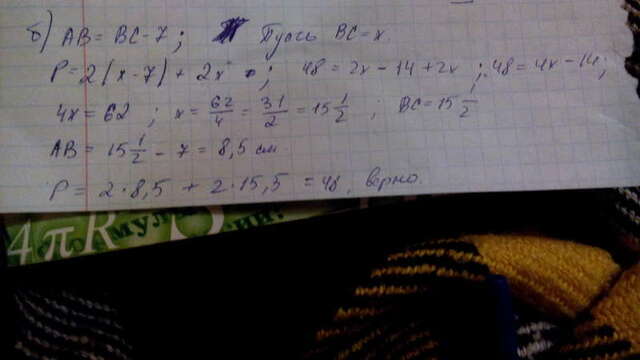 б) AB = BC - 7 ; Пусть BC = x.
P = 2(x - 7) + 2x ; 48 = 2x - 14 + 2x ; 48 = 4x - 14 ;
4x = 62 ; x = 62/4 = 31/2 = 15 1/2 ; BC = 15 1/2
AB = 15 1/2 - 7 = 8,5 см.
P = 2 · 8,5 + 2 · 15,5 = 48, верно.
4πR